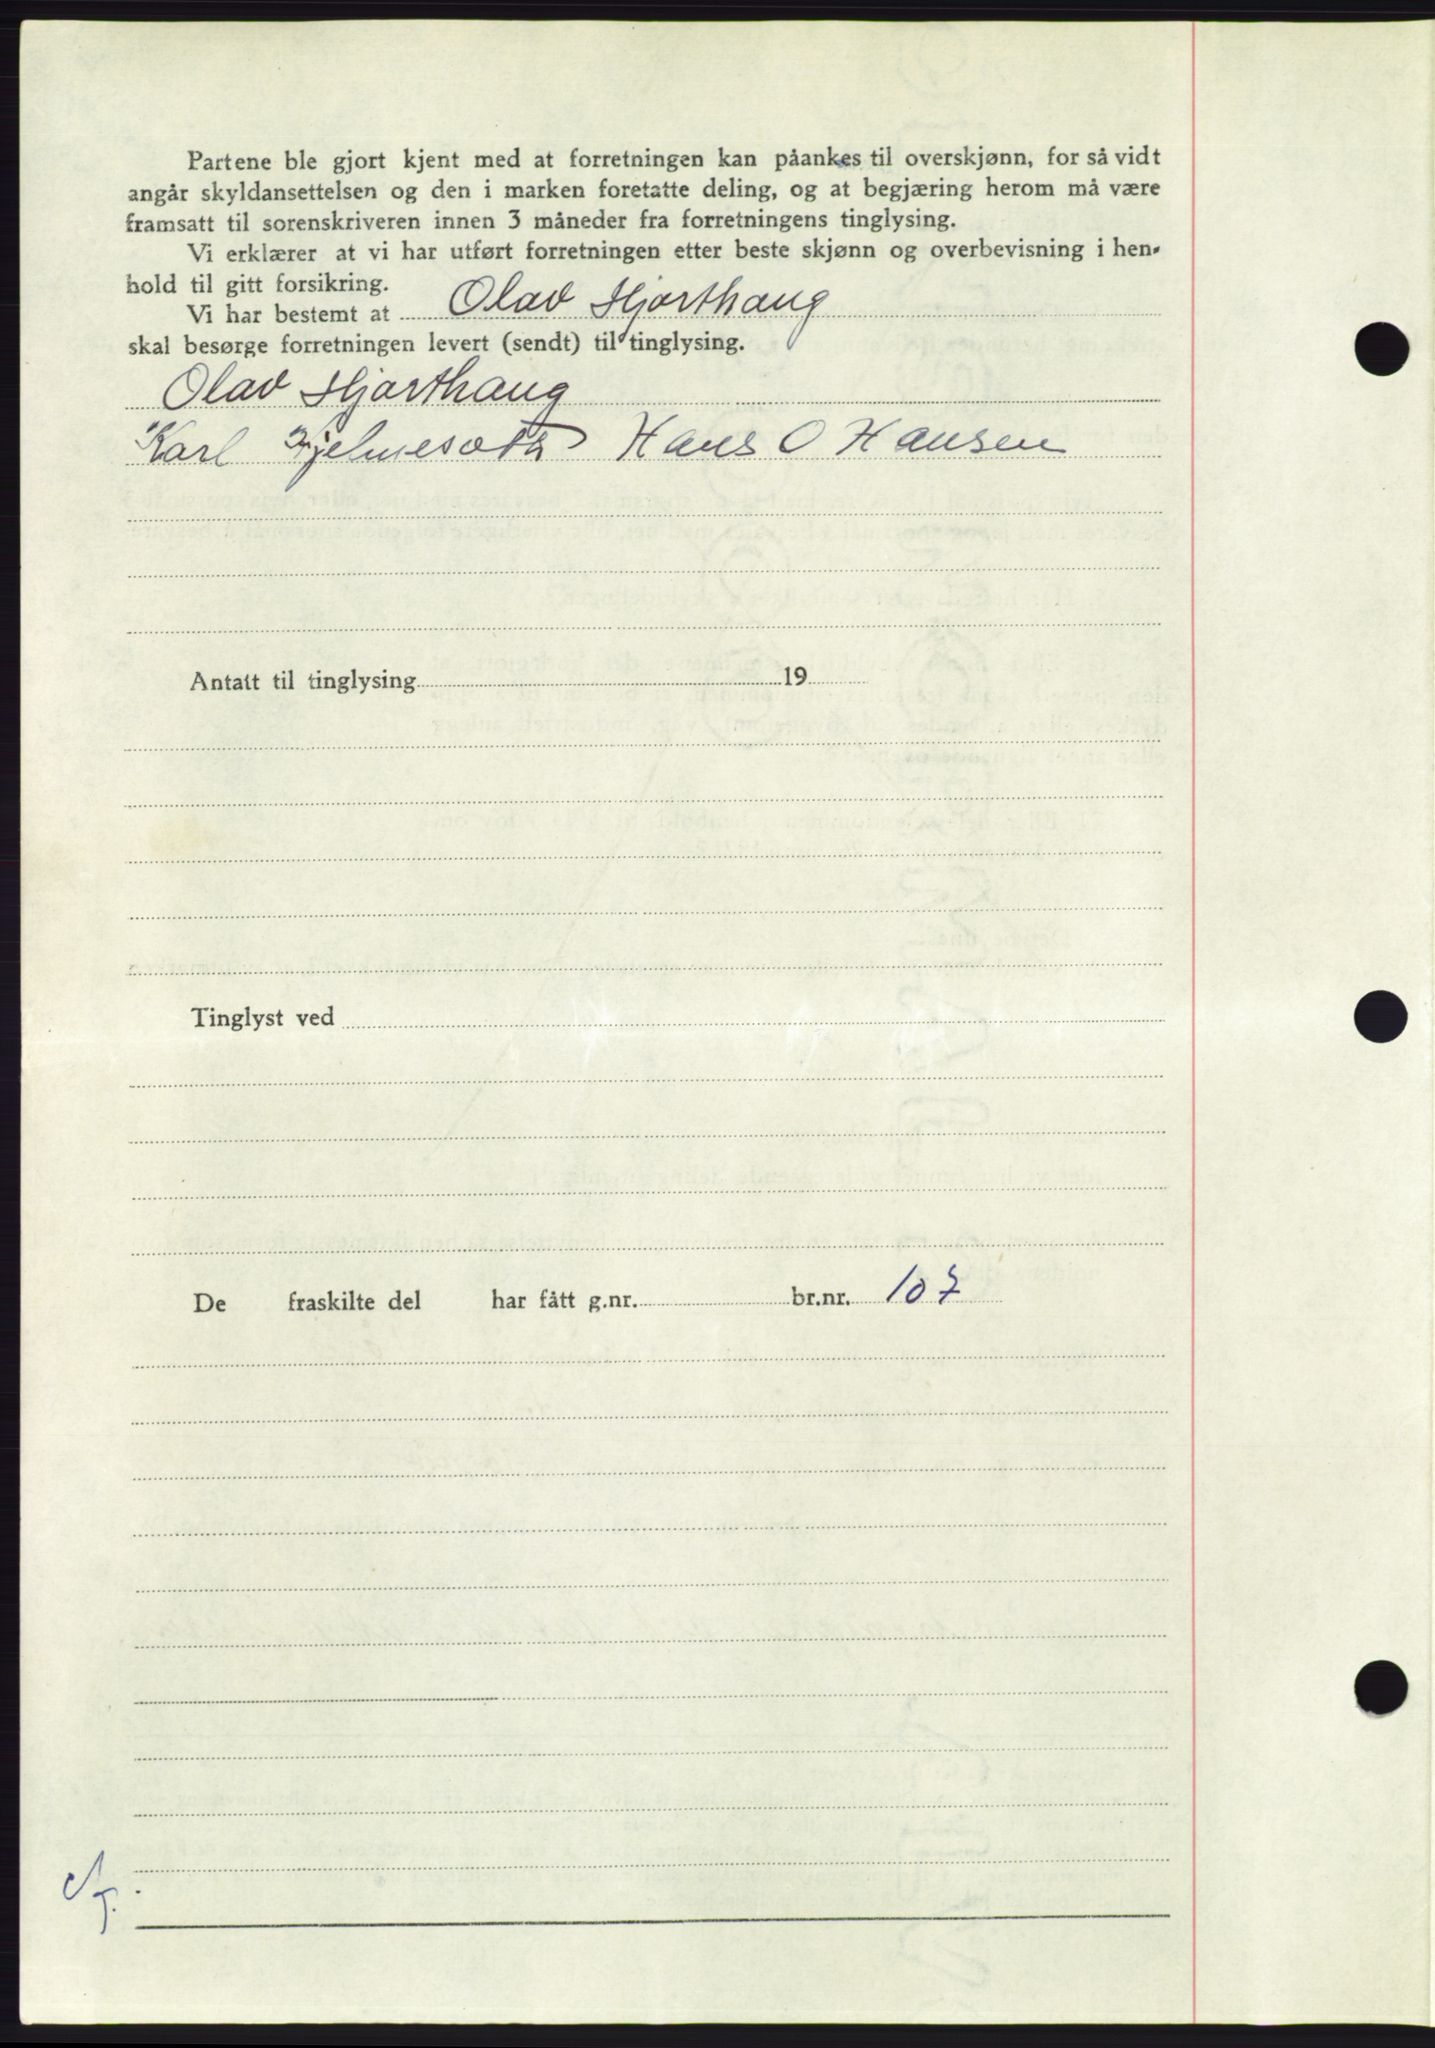 Partene ble gjort kjent med at forretningen kan påankes til overskjønn, for så vidt
angår skyldansettelsen og den i marken foretatte deling, og at begjæring herom må være
framsatt til sorenskriveren innen 3 måneder fra forretningens tinglysing.
Vi erklærer at vi har utført forretningen etter beste skjønn og overbevisning i hen-
hold til gitt forsikring.
Vi har bestemt at Olav Hjorthaug
skal besørge forretningen levert (sendt) til tinglysing.
Olav Hjorthaug
Karl Hans O Hansen
Antatt til tinglysing 19
Tinglyst ved
De fraskilte del har fått g.nr. br.nr. 107